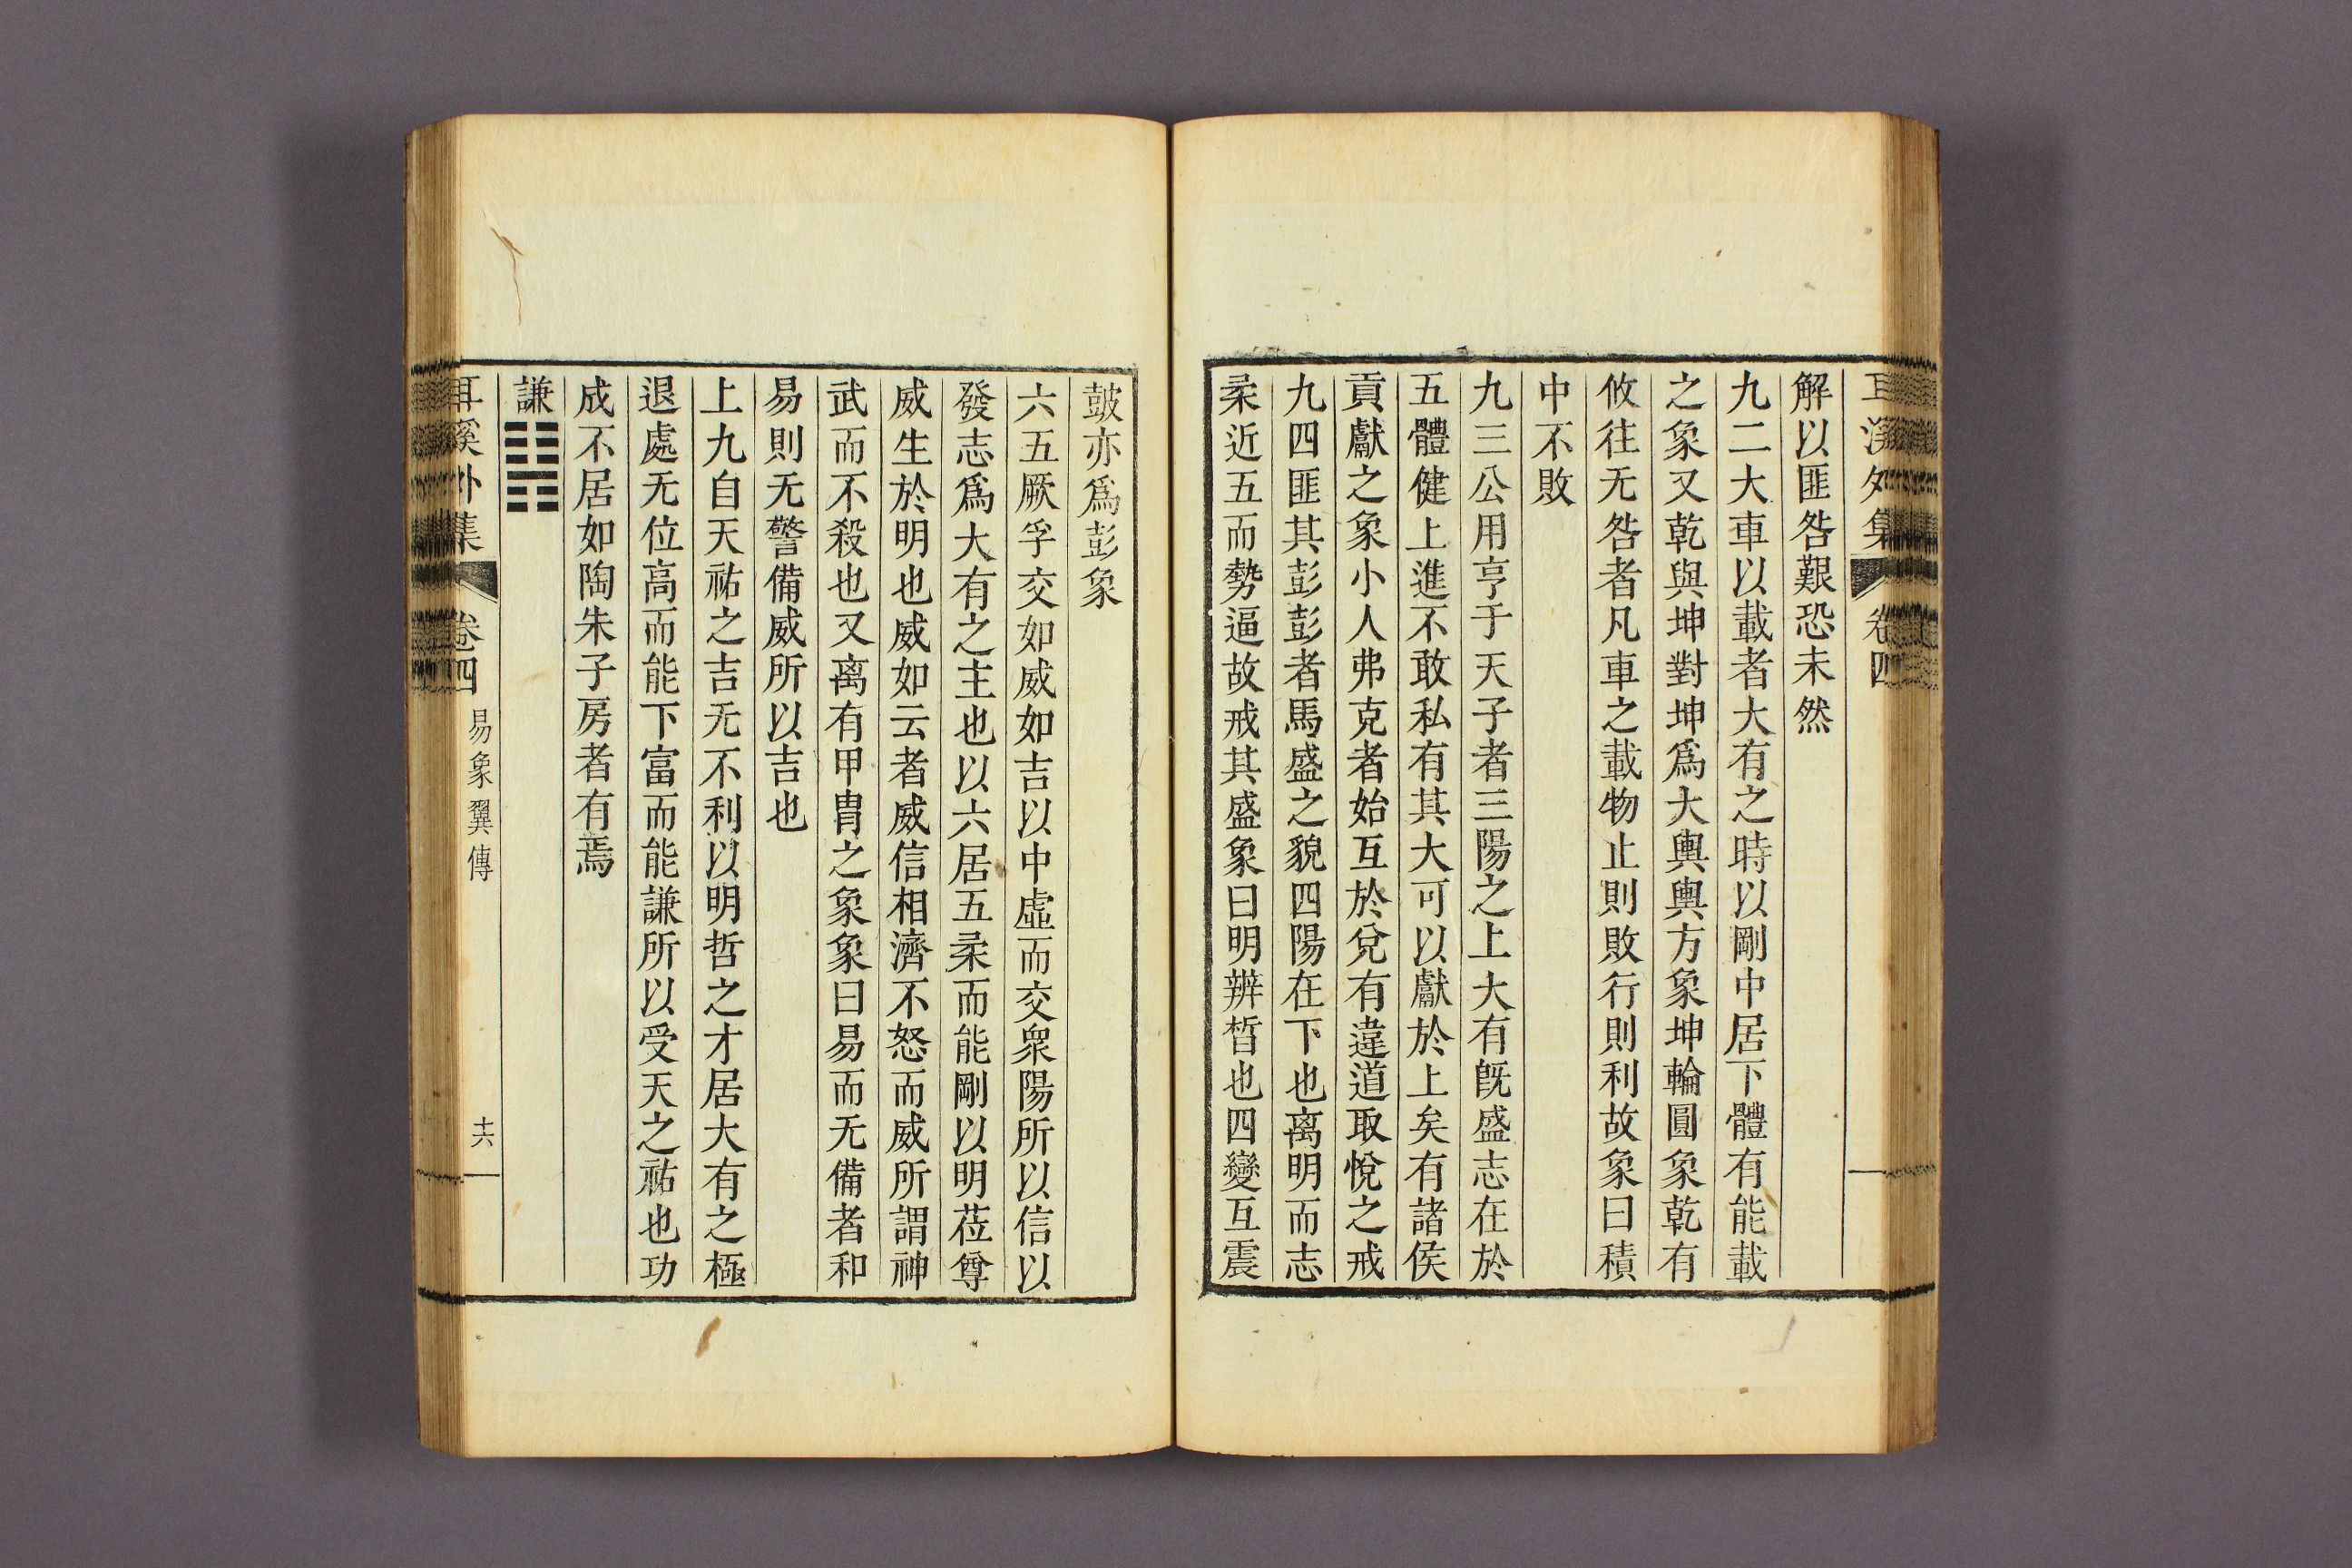 耳溪外集 卷四
解以匪咎艱恐未然
九二大車以載者大有之時以剛中居下體有能載
之象又乾與坤對坤爲大輿輿方象坤輪圓象乾有
攸往无咎者凡車之載物止則敗行則利故象曰積
中不敗
九三公用亨于天子者三陽之上大有旣盛志在於
五體健上進不敢私有其大可以獻於上矣有諸侯
貢獻之象小人弗克者始互於兌有違道取悅之戒
九四匪其彭彭者馬盛之貌四陽在下也离明而志
柔近五而勢逼故戒其盛象曰明辨晳也四變互震
鼓亦爲彭象
六五厥孚交如威如吉以中虛而交衆陽所以信以
發志爲大有之主也以六居五柔而能剛以明莅尊
威生於明也威如云者威信相濟不怒而威所謂神
武而不殺也又离有甲胄之象象曰易而无備者和
易則无警備威所以吉也
上九自天祐之吉无不利以明哲之才居大有之極
退處无位高而能下富而能謙所以受天之祐也功
成不居如陶朱子房者有焉
謙䷎
耳溪外集 卷四 易象翼傳 十六